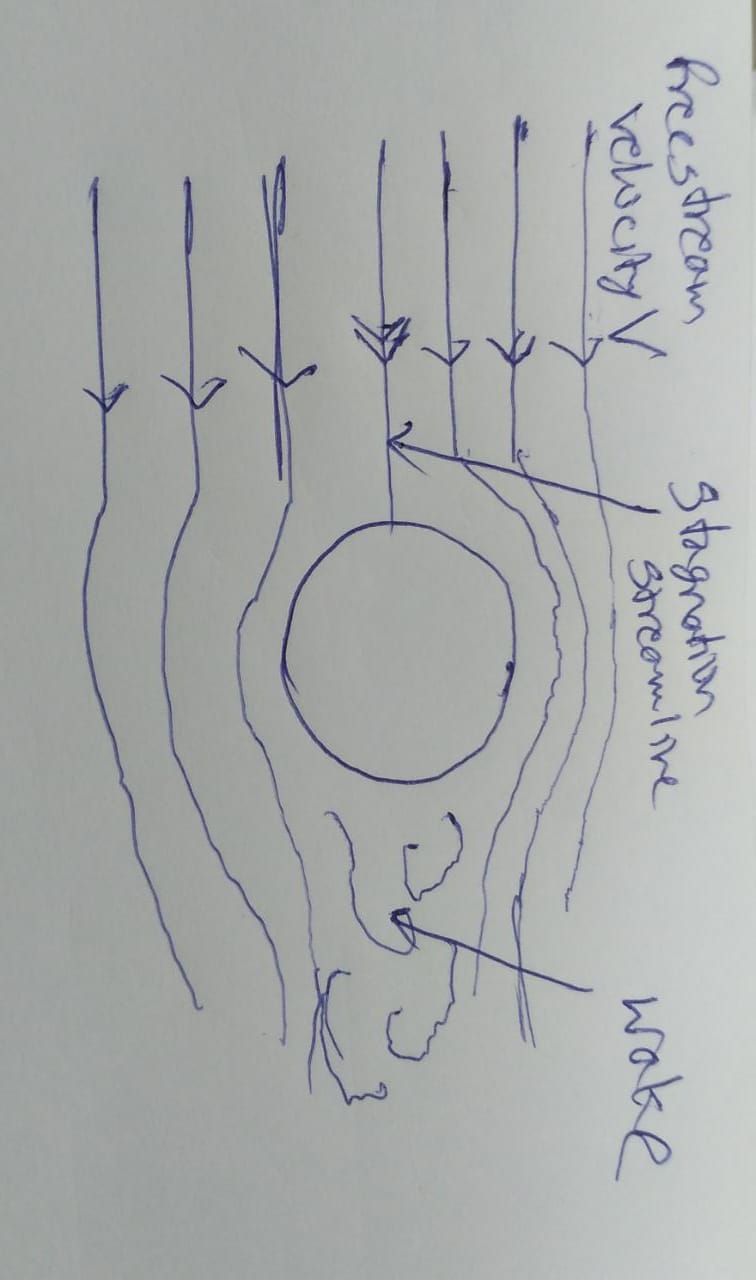 Freestream
velocity V
Stagnation
streamline
wake